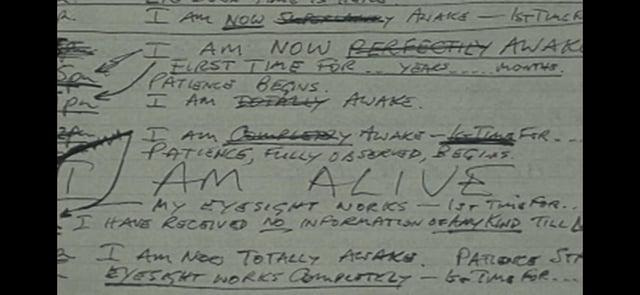 I AM NOW SUPERLATIVELY AWAKE — 1ST TIME F
I AM NOW PERFECTLY AWAK
FIRST TIME FOR ... YEARS ..... MONTHS.
5pm PATIENCE BEGINS.
pm I AM TOTALLY AWAKE.
2pm I AM COMPLETELY AWAKE — 1STTIME FOR...
PATIENCE, FULLY OBSERVED, BEGINS.
I AM ALIVE
MY EYESIGHT WORKS — 1ST TIME FOR..
I HAVE RECEIVED NO INFORMATION OF ANY KIND TILL
I AM NOW TOTALLY AWAKE. PATIENCE ST
EYESIGHT WORKS COMPLETELY — 1ST TIME FOR...